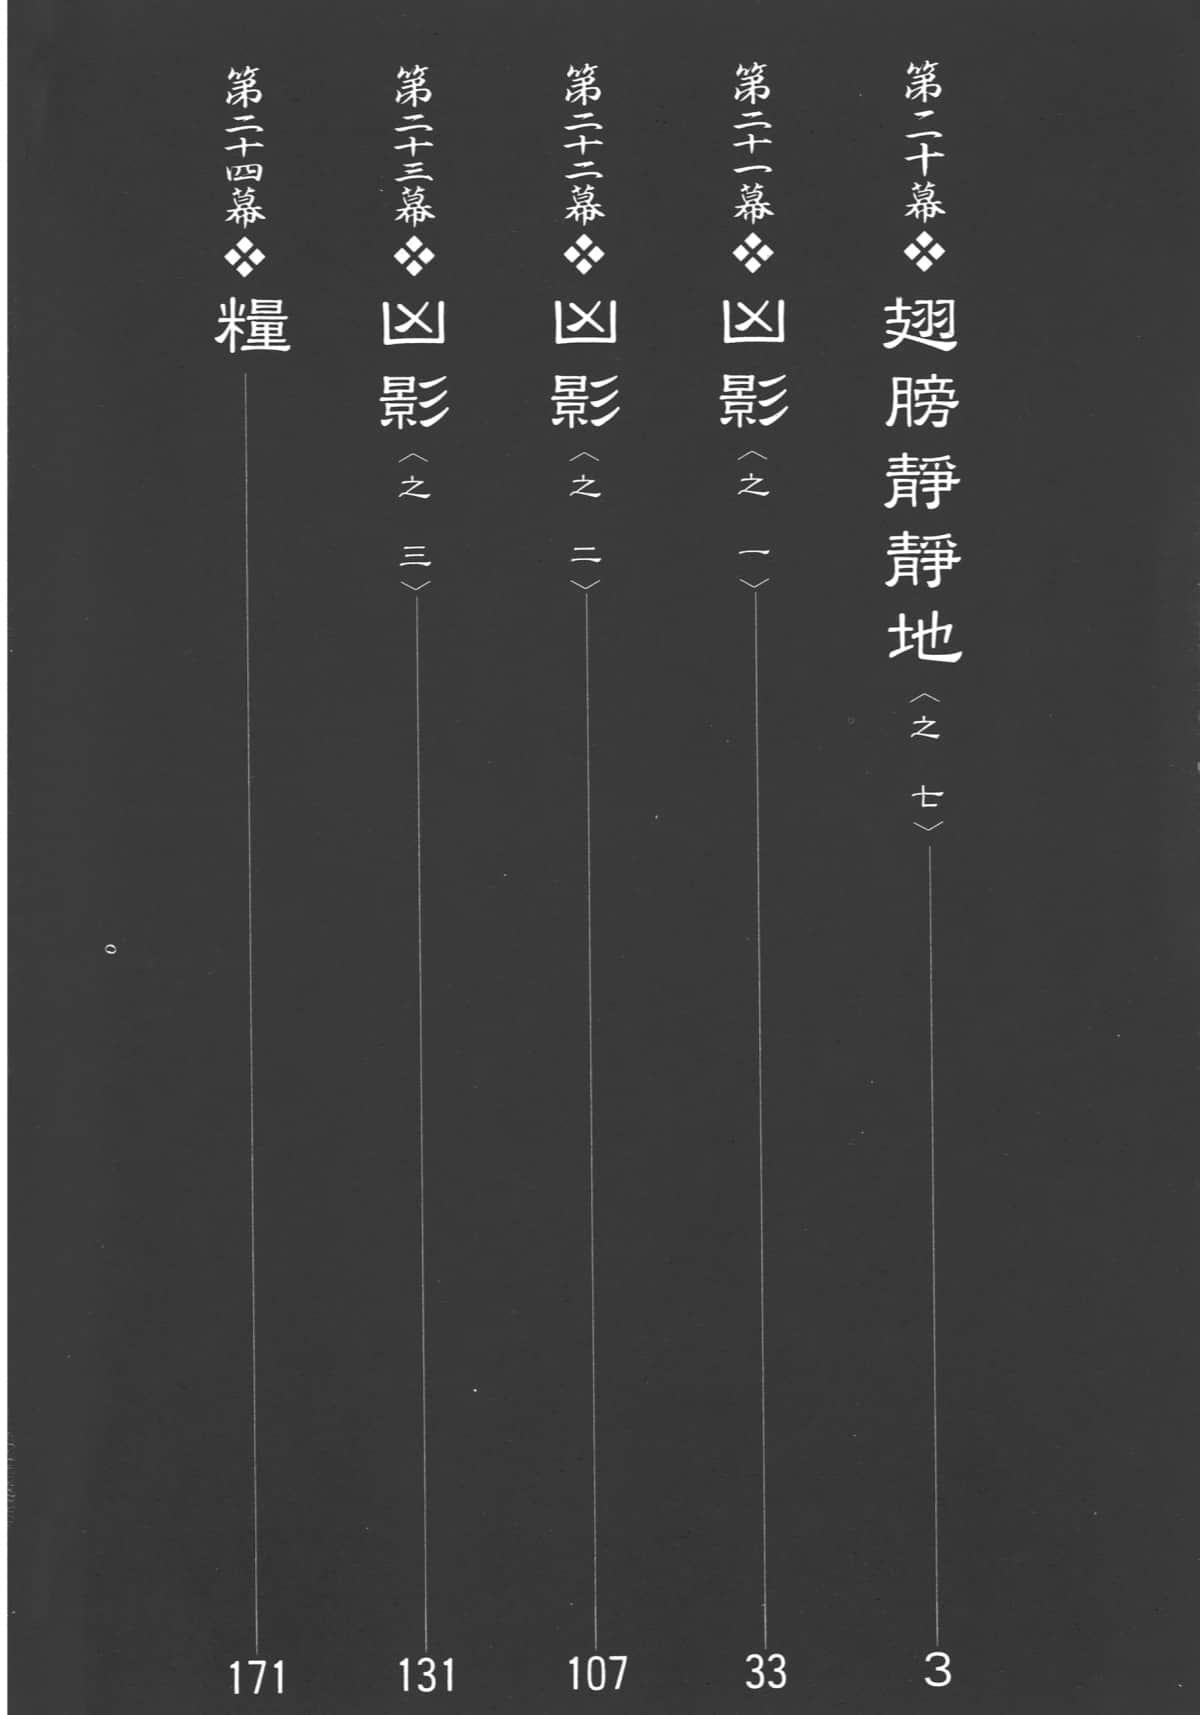 第二十幕❖翅膀靜靜地〈之 七〉3
第二十一幕❖凶影〈之 一〉33
第二十二幕❖凶影〈之 二〉107
第二十三幕❖凶影〈之 三〉131
第二十四幕❖糧171